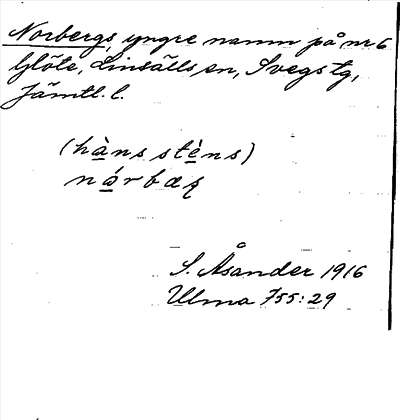 Norbergs, yngre namn på nr 6
Glöte, Linsälls sn, Svegs tg,
Jämtl. l.
(hàns stèns)
nórbæʂ
S. Åsander 1916
Ulma 755:29